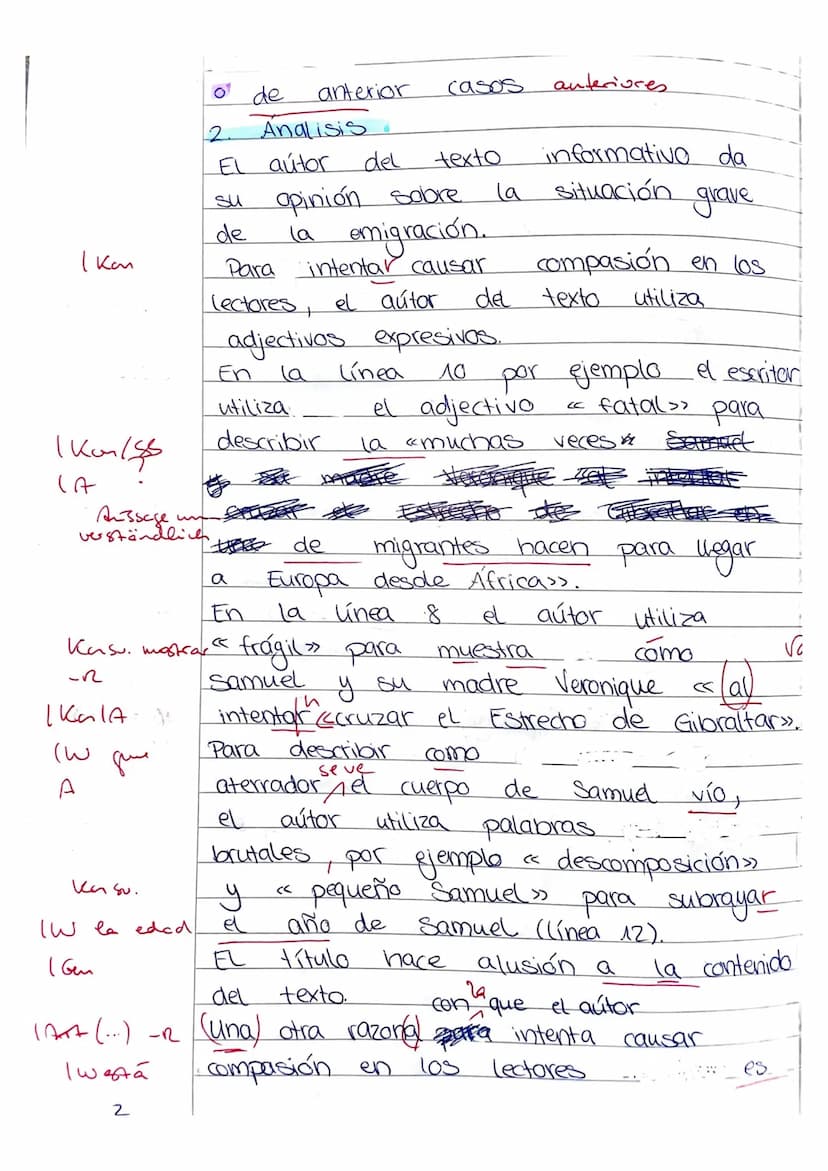 o de anterior casos anteriores
2. Ánalisis
El aútor del texto informativo da
su opinión sobre la situación grave
de la emigración.
| Kon Para intentar causar compasión en los
lectores, el aútor del texto utiliza
adjectivos expresivos.
En la línea 10 por ejemplo el escritor
utiliza el adjectivo « fatal» para
| Kon/SB describir la «muchas veces
? | A
Aussage un-
verständlich
de migrantes hacen para llegar
a Europa desde África».
En la línea 8 el aútor utiliza
Kon sv. mostrar « frágil» para muestra cómo
-R Samuel y su madre Veronique « (al)
| Kon | A intentar «cruzar el Estrecho de Gibraltar».
| W que Para describir como
A aterrador se ve el cuerpo de Samuel vío,
el aútor utiliza palabras
brutales, por ejemplo « descomposición»
Kon sv. y « pequeño Samuel» para subrayar
| W la edad el año de Samuel (línea 12).
| Gen El título hace alusión a la contenido
del texto. con la que el aútor
| Art (...) -R (una) otra razon(a) para intenta causar
| W está compasión en los lectores es
2